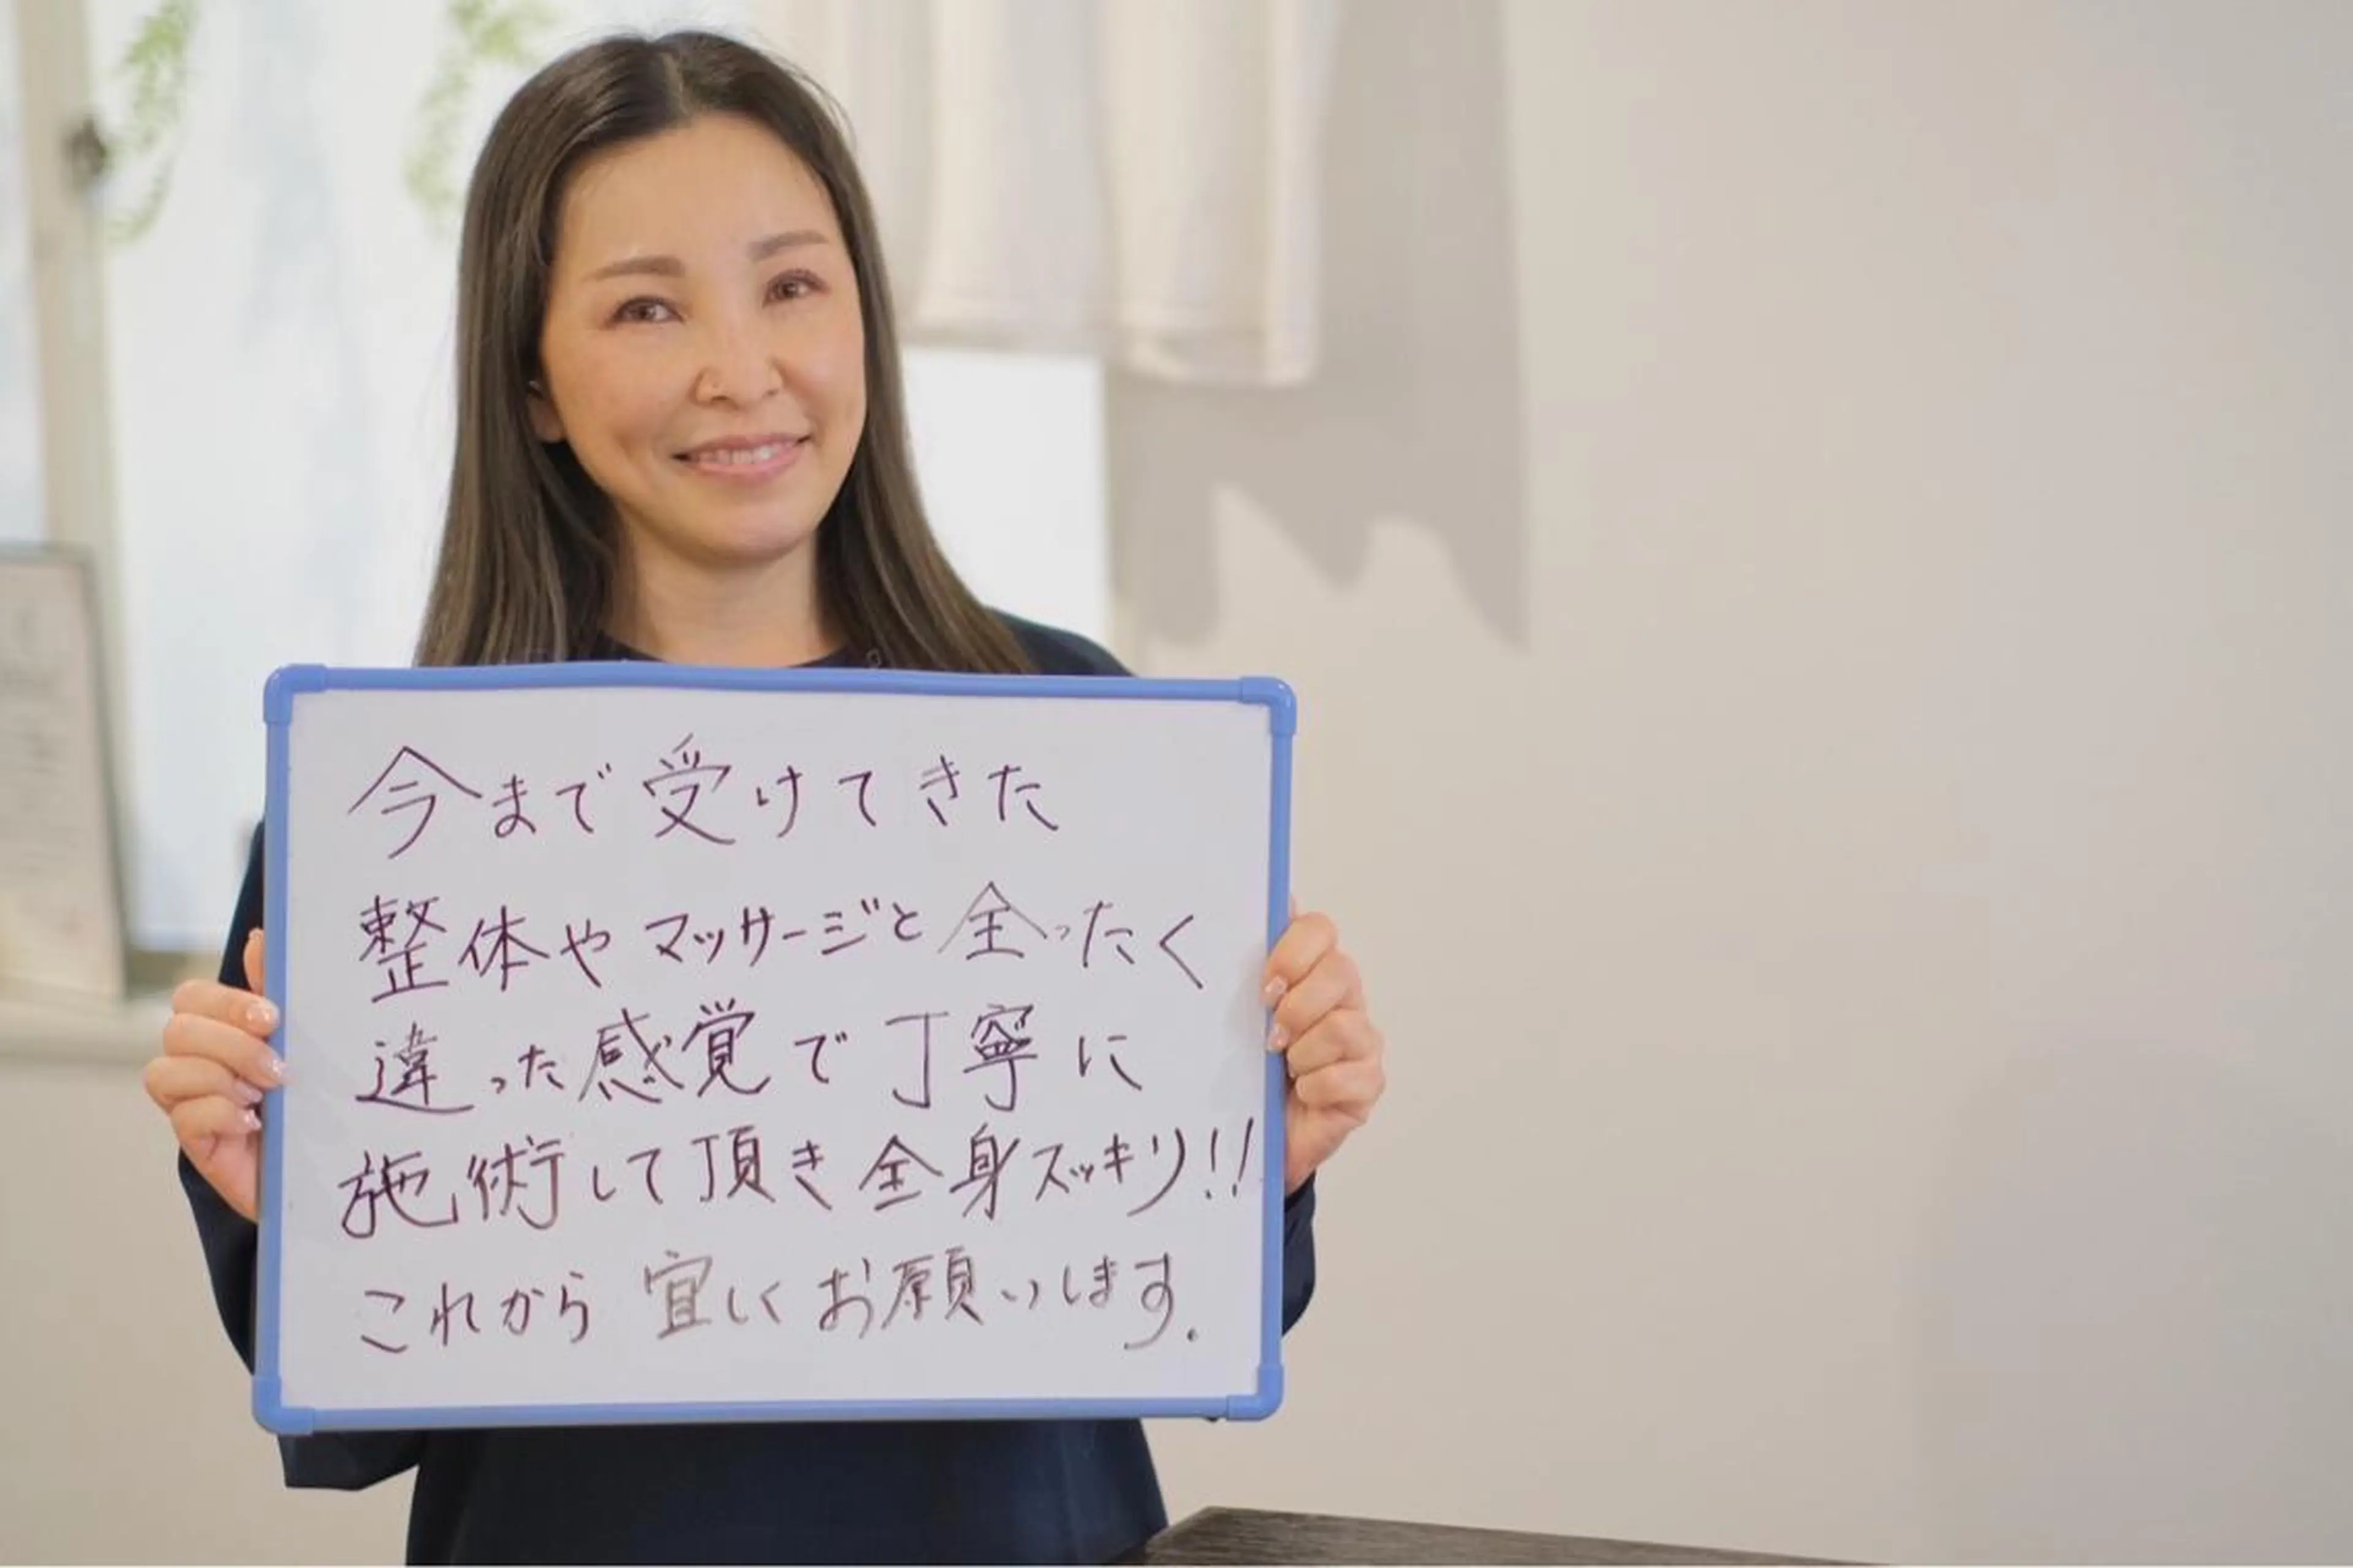 今まで受けてきた
整体やマッサージと全ったく
違った感覚で丁寧に
施術して頂き全身スッキリ!!
これから宜しくお願いします.